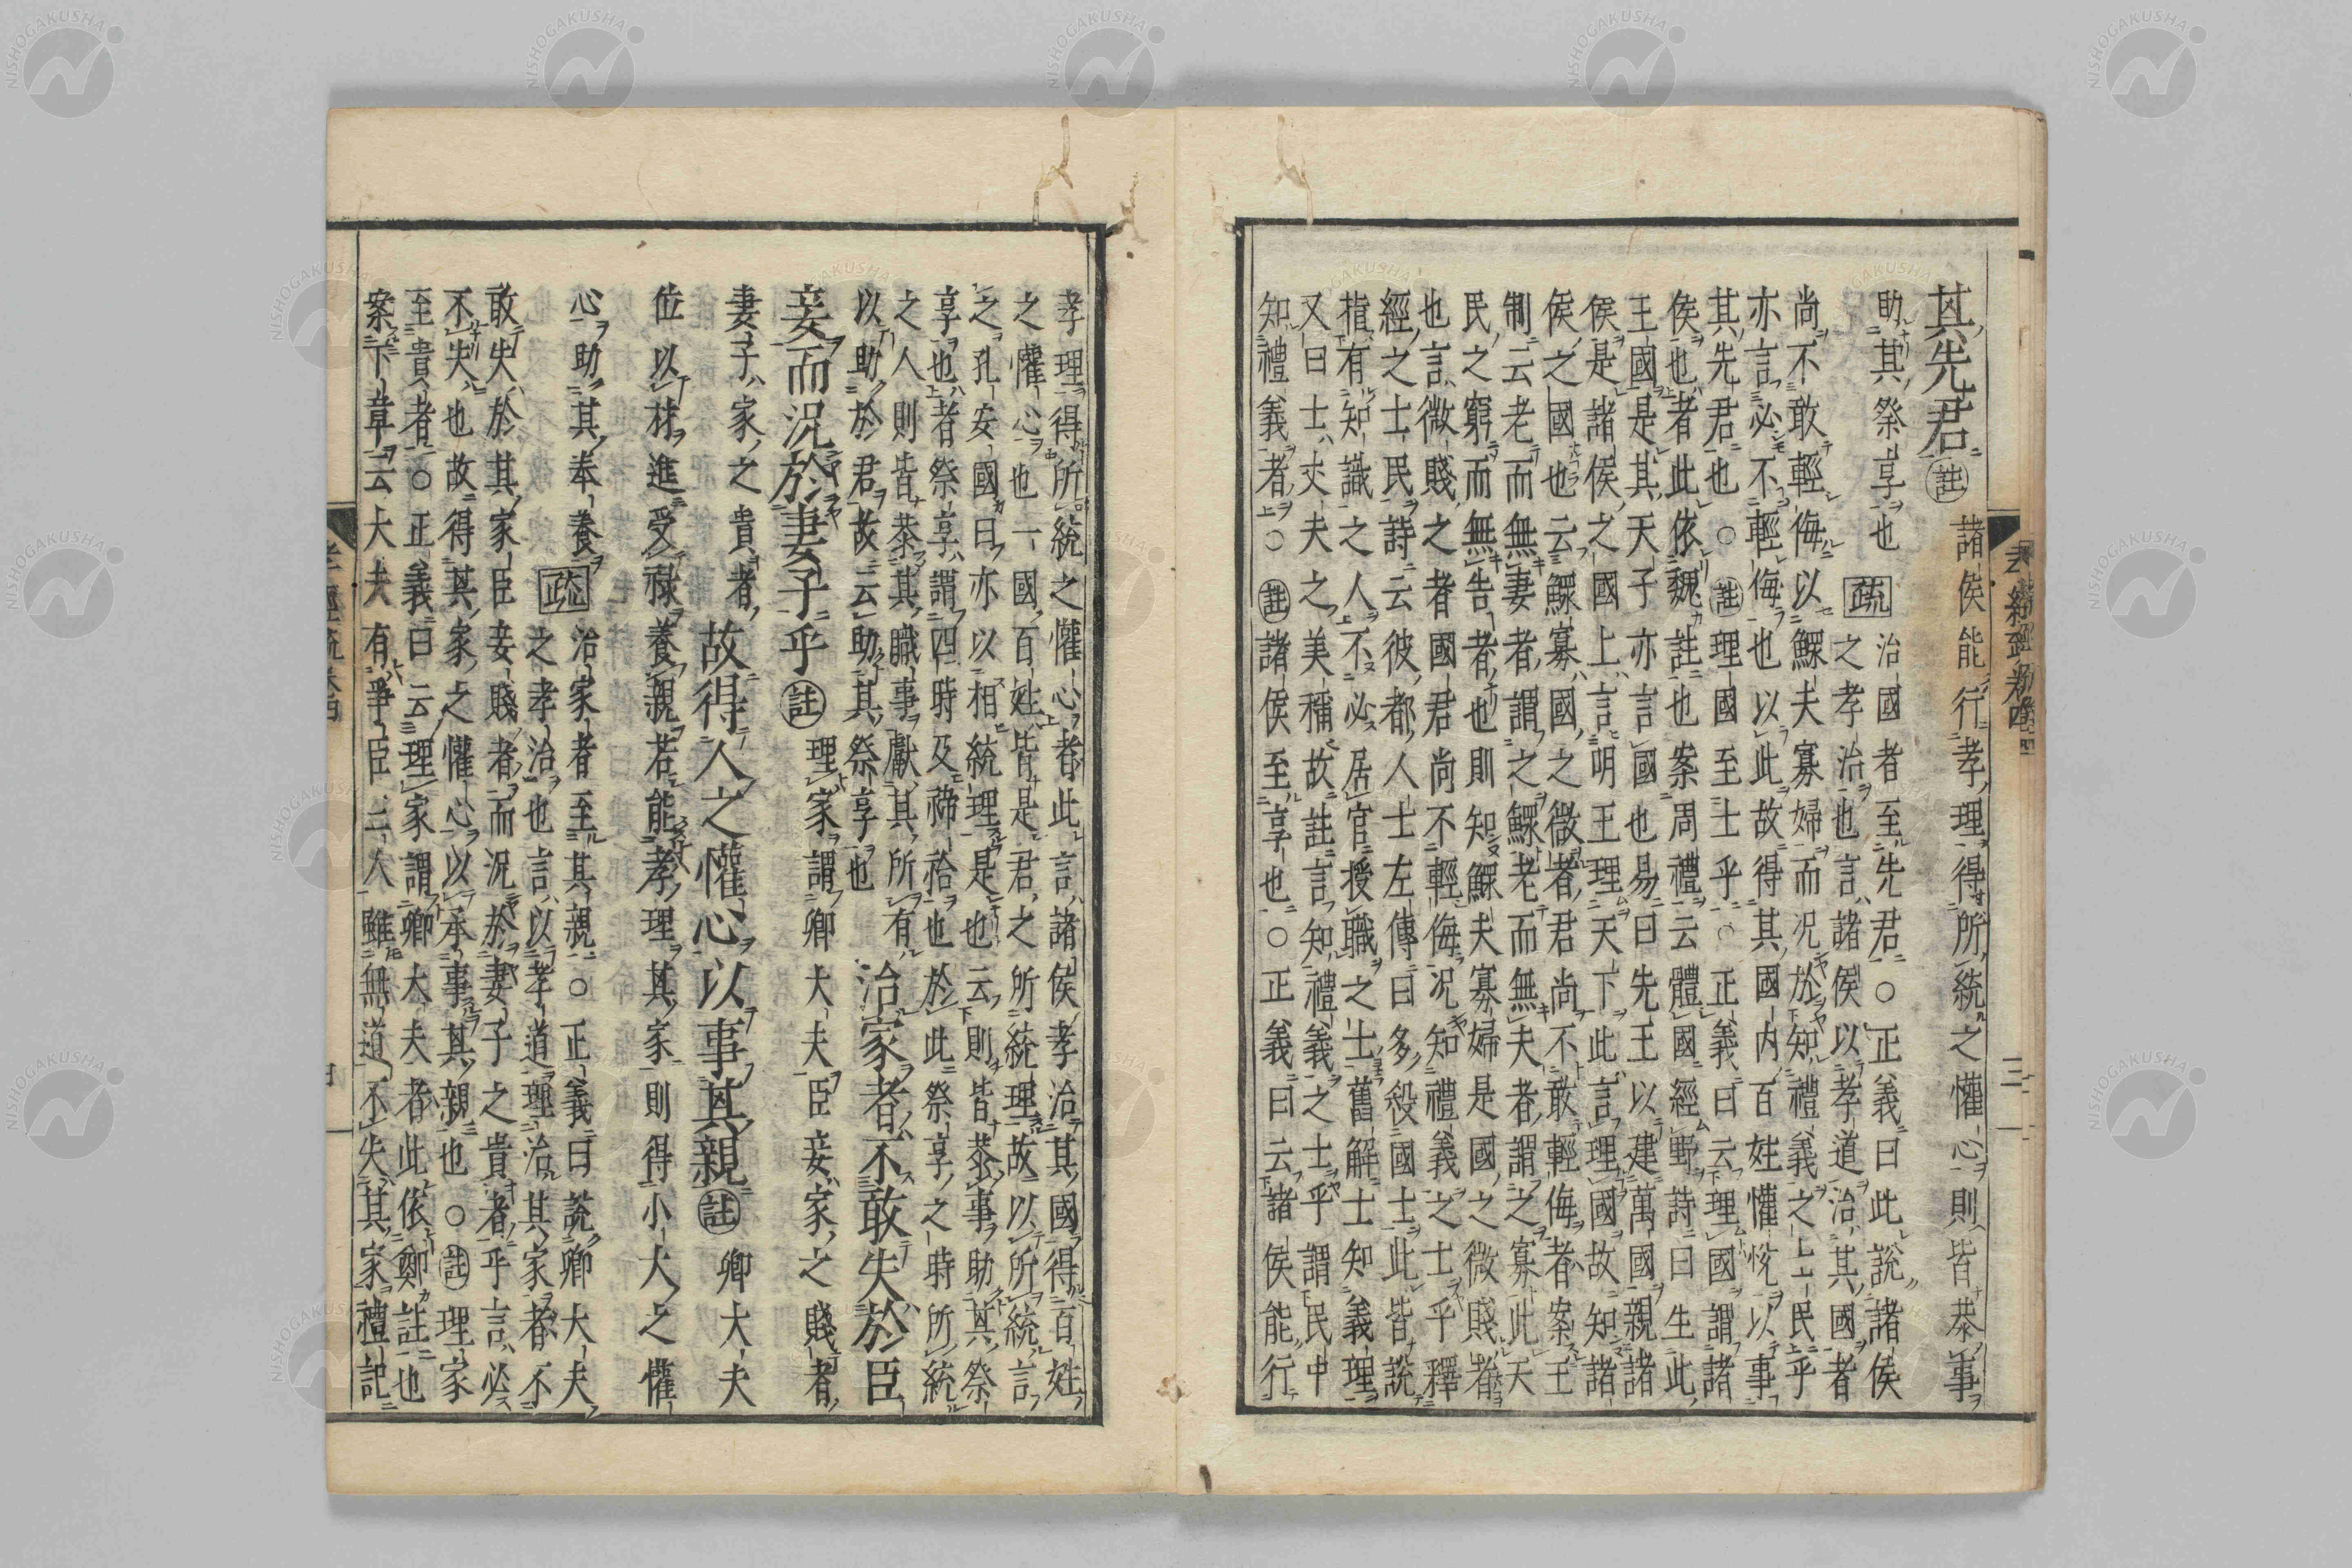 其先君 註 諸侯能行孝理得所統之懽心則皆恭事
助其祭享也 疏 治國者至先君○正義曰此說諸侯
之孝治也言諸侯以孝道治其國者
尚不敢輕侮以鰥夫寡婦而況於知禮義之士民乎
亦言必不輕侮也以此故得其國内百姓懽悅以事
其先君也○註理國至士乎○正義曰云理國謂諸
侯也者此依魏註也案周禮云體國經野詩曰生此
王國是其天子亦言國也易曰先王以建萬國親諸
侯是諸侯之國上言明王理天下此言理國故知諸
侯之國也云鰥寡國之微者君尚不敢輕侮者案王
制云老而無妻者謂之鰥老而無夫者謂之寡此天
民之窮而無告者也則知鰥夫寡婦是國之微賤者
也言微賤之者國君尚不輕侮況知禮義之士乎釋
經之士民詩云彼都人士左傳曰多殺國士此皆說
指有知識之人不必居官授職之士舊解士知義理
又曰士丈夫之美稱故註言知禮義之士乎謂民中
知禮義者○註諸侯至享也○正義曰云諸侯能行
孝理得所統之懽心者此言諸侯孝治其國得百姓
之懽心也一國百姓皆是君之所統理故以所統言
之孔安國曰亦以相統理是也云則皆恭事助其祭
享也者祭享謂四時及禘祫也於此祭享之時所統
之人則皆恭其職事獻其所有
以助於君故云助其祭享也 治家者不敢失於臣
妾而況於妻子乎 註 理家謂卿大夫臣妾家之賤者
妻子家之貴者 故得人之懽心以事其親 註 卿大夫
位以材進受祿養親若能孝理其家則得小大之懽
心助其奉養 疏 治家者至其親○正義曰說卿大夫
之孝治也言以孝道理治其家者不
敢失於其家臣妾賤者而況於妻子之貴者乎言必
不失也故得其家之懽心以承事其親也○註理家
至貴者○正義曰云理家謂卿大夫者此依鄭註也
案下章云大夫有爭臣三人雖無道不失其家禮記